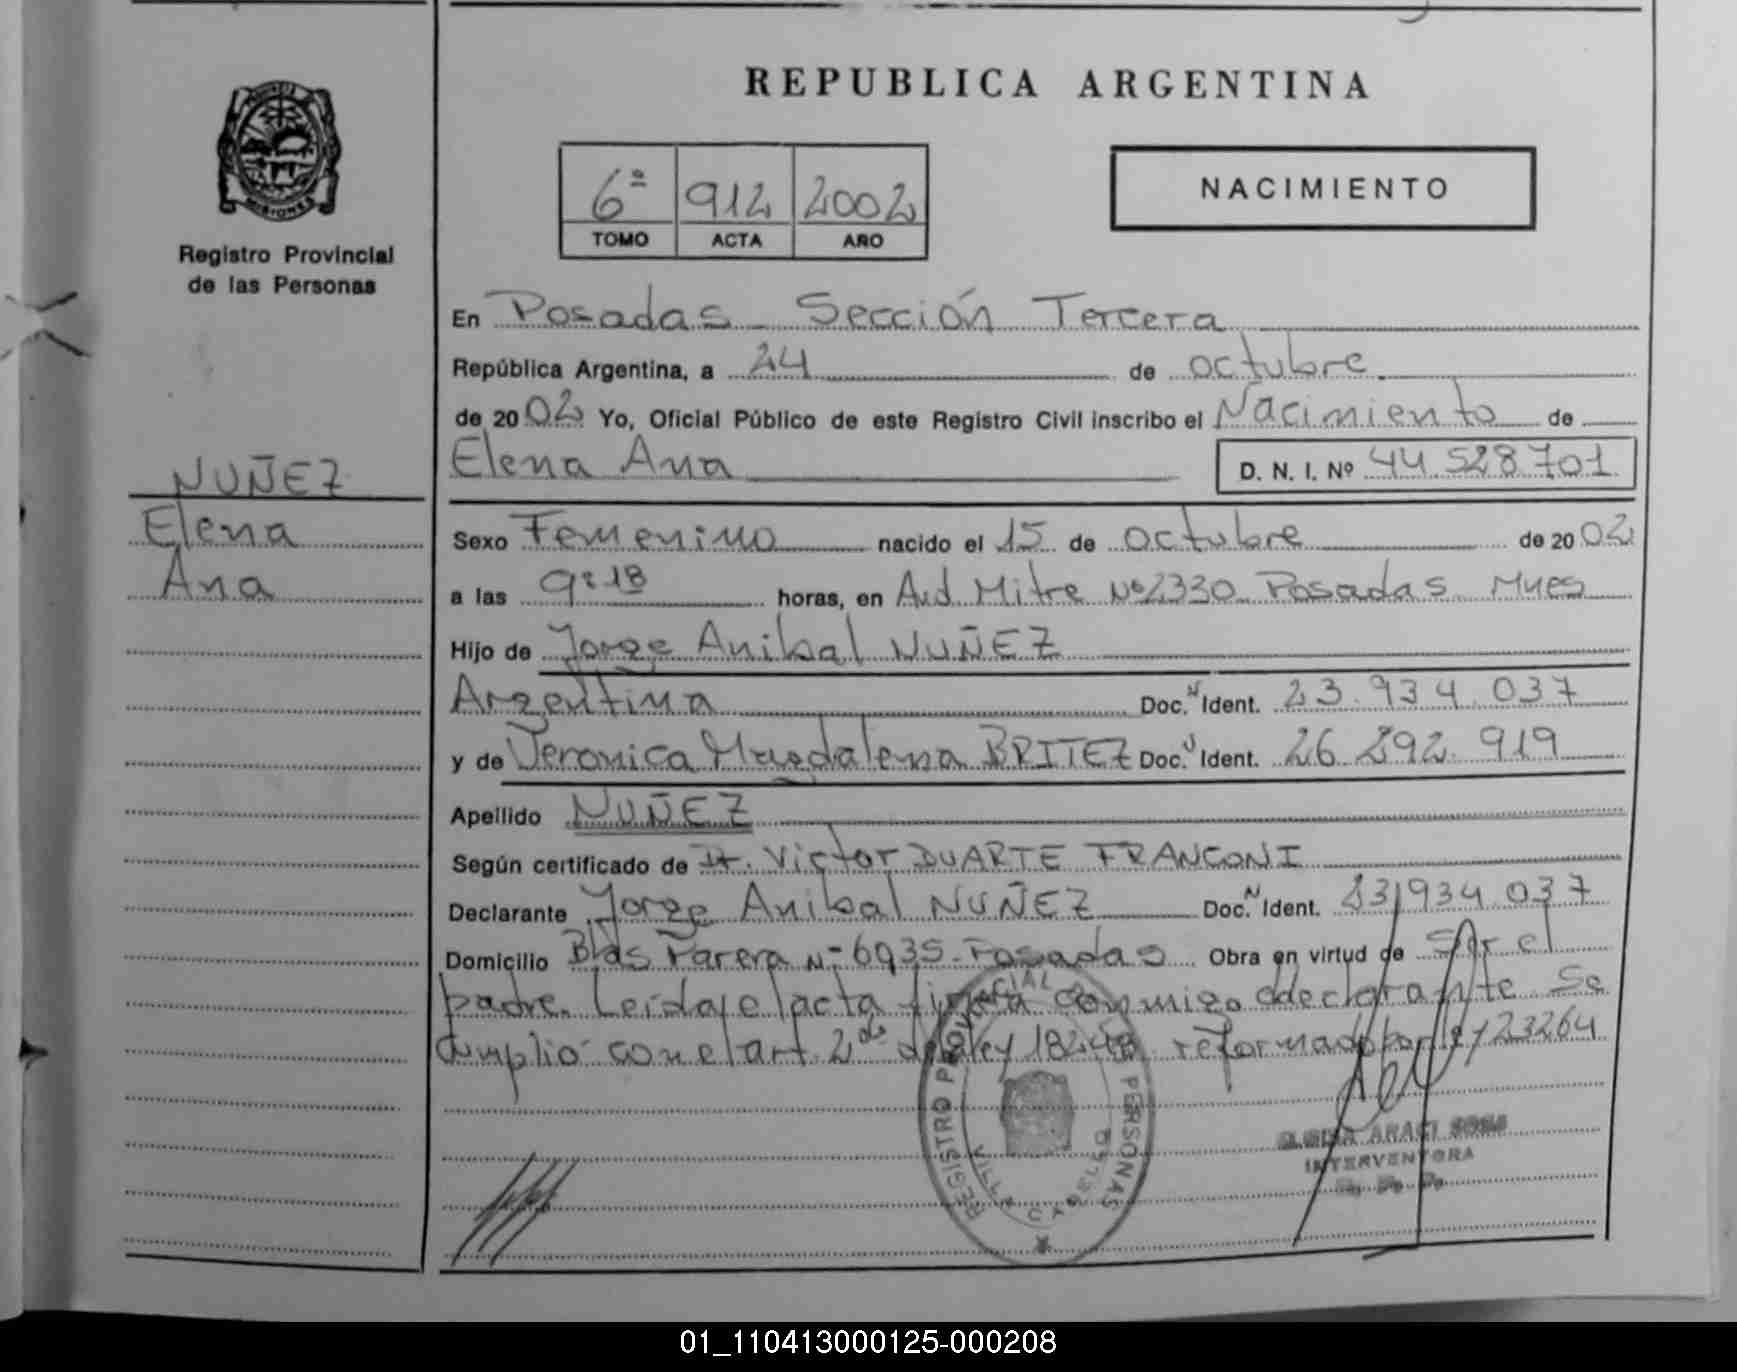 REPUBLICA ARGENTINA
PROVINCIA
MISIONES
Registro Provincial
de las Personas
6ª 912 2002
TOMO ACTA AÑO
NACIMIENTO
En Posadas Sección Tercera
República Argentina, a 24 de octubre
de 2002 Yo, Oficial Público de este Registro Civil inscribo el Nacimiento de
Elena Ana D. N. I. Nº 44 528 701
NUÑEZ
Elena
Ana
Sexo Femenino nacido el 15 de octubre de 2002
a las 9:18 horas, en Avd Mitre Nº 2330 Posadas Mnes
Hijo de Jorge Anibal NUÑEZ
Argentina Doc. N Ident. 23.934.037
y de Veronica Magdalena BRITEZ Doc. Ident. 26.292.919
Apellido NUÑEZ
Según certificado de Dr. Victor DUARTE FRANCONI
Declarante Jorge Anibal NUÑEZ Doc. N Ident. 23.934.037
Domicilio Blas Parera Nº 6935 - Posadas Obra en virtud de Ser el
padre. Leida el acta firma conmigo declarante Se
cumplió con el art. 2do de la ley 18248 reformado por ley 23264
REGISTRO PROVINCIAL PERSONAS
VILLA CABELLO
ARACI SOSA
INTERVENTORA
R. P. P.
01_110413000125-000208